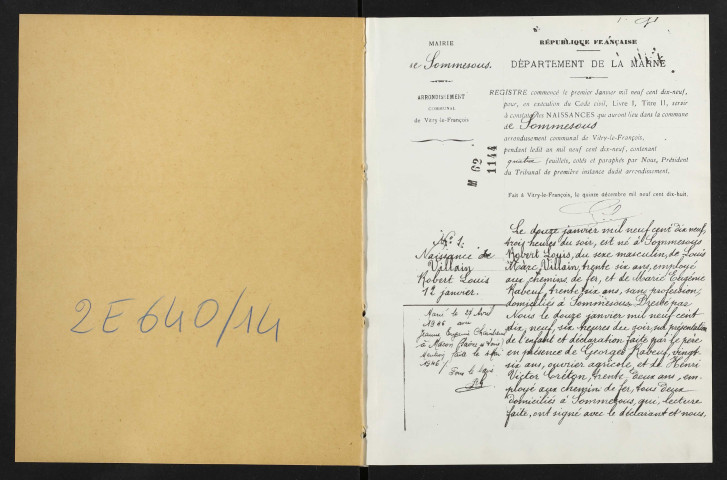 2E640/14
MAIRIE
de Sommesous.
ARRONDISSEMENT
COMMUNAL
de Vitry-le-François
M 62
1144
RÉPUBLIQUE FRANÇAISE
DÉPARTEMENT DE LA MARNE
REGISTRE commencé le premier Janvier mil neuf cent dix-neuf,
pour, en exécution du Code civil, Livre I, Titre II, servir
à constater les NAISSANCES qui auront lieu dans la commune
de Sommesous
arrondissement communal de Vitry-le-François,
pendant ledit an mil neuf cent dix-neuf, contenant
quatre feuillets, cotés et paraphés par Nous, Président
du Tribunal de première instance dudit arrondissement.
Fait à Vitry-le-François, le quinze décembre mil neuf cent dix-huit.
No 1.
Naissance de
Villain
Robert Louis
12 janvier.
Marié le 27
1946 avec
Jeanne Eugénie
à Mâcon (Saône et Loire)
mention faite le
1946
Le douze janvier mil neuf cent dix neuf,
trois heures du soir, est né à Sommesous
Robert Louis, du sexe masculin, de Louis
Marc Villain, trente six ans, employé
aux chemins de fer, et de Marie Eugénie
Rabeuf, trente six ans, sans profession,
domiciliés à Sommesous. Dressé par
Nous le douze janvier mil neuf cent
dix neuf, six heures du soir, sur présentation
de l'enfant et déclaration faite par le père
en présence de Georges Rabeuf, vingt
six ans, ouvrier agricole, et de Henri
Victor Créton, trente deux ans, em-
ployé aux chemin de fer, tous deux
domiciliés à Sommesous, qui, lecture
faite, ont signé avec le déclarant et nous.